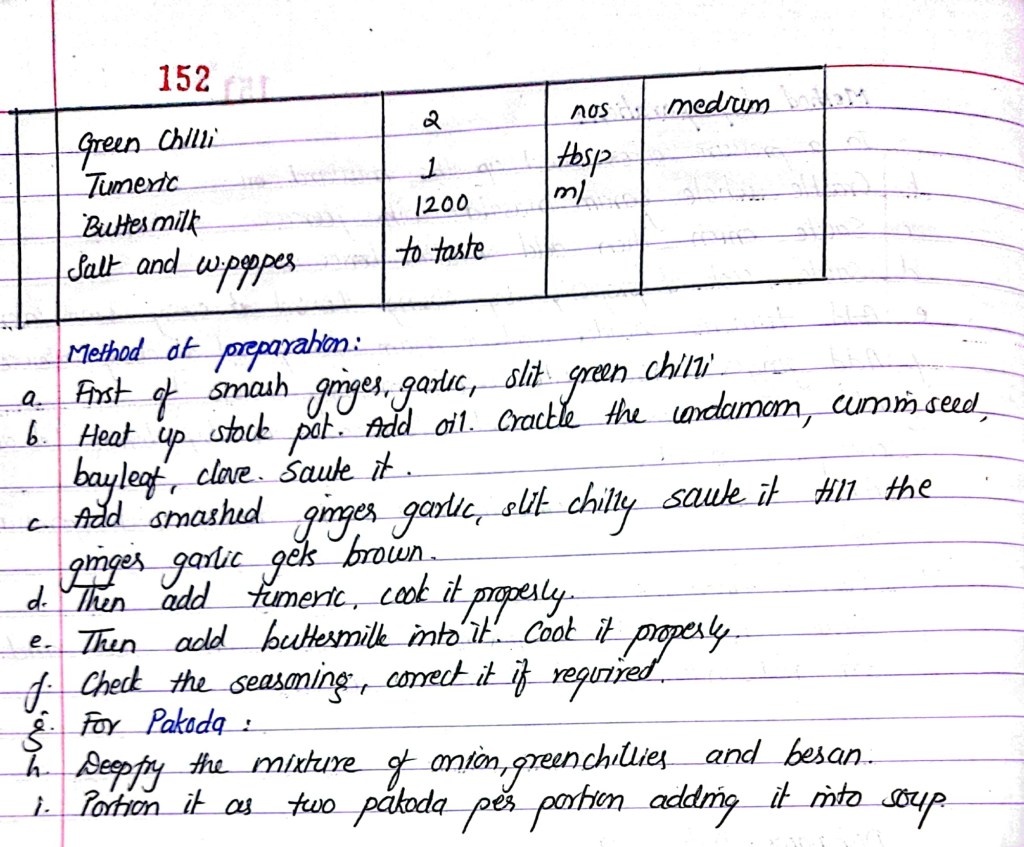 152
Green Chilli 2 nos medium
Tumeric 1 tbsp
Buttermilk 1200 ml
Salt and w.pepper to taste
Method of preparation:
a. First of smash ginger, garlic, slit green chilli
b. Heat up stock pot. Add oil. Crackle the cardamom, cummin seed,
bayleaf, clove. Saute it.
c. Add smashed ginger garlic, slit chilly saute it till the
ginger garlic gets brown.
d. Then add tumeric, cook it properly.
e. Then add buttermilk into it. Cook it properly.
f. Check the seasoning, correct it if required.
g. For Pakoda :
h. Deepfry the mixture of onion, green chillies and besan.
i. Portion it as two pakoda per portion adding it into soup.